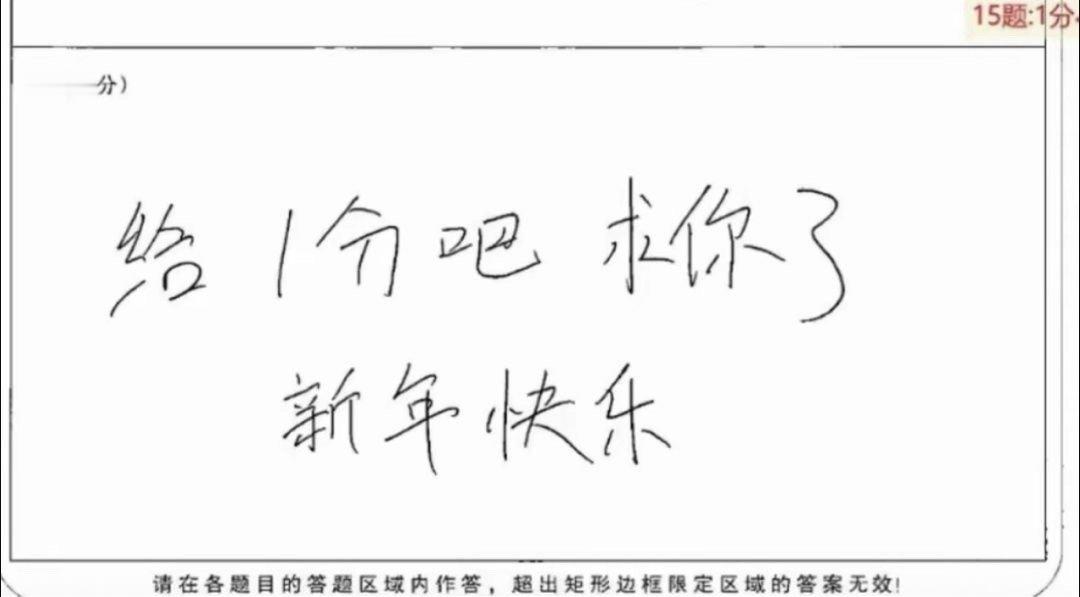 15题:1分
分)
给1分吧 求你了
新年快乐
请在各题目的答题区域内作答，超出矩形边框限定区域的答案无效!